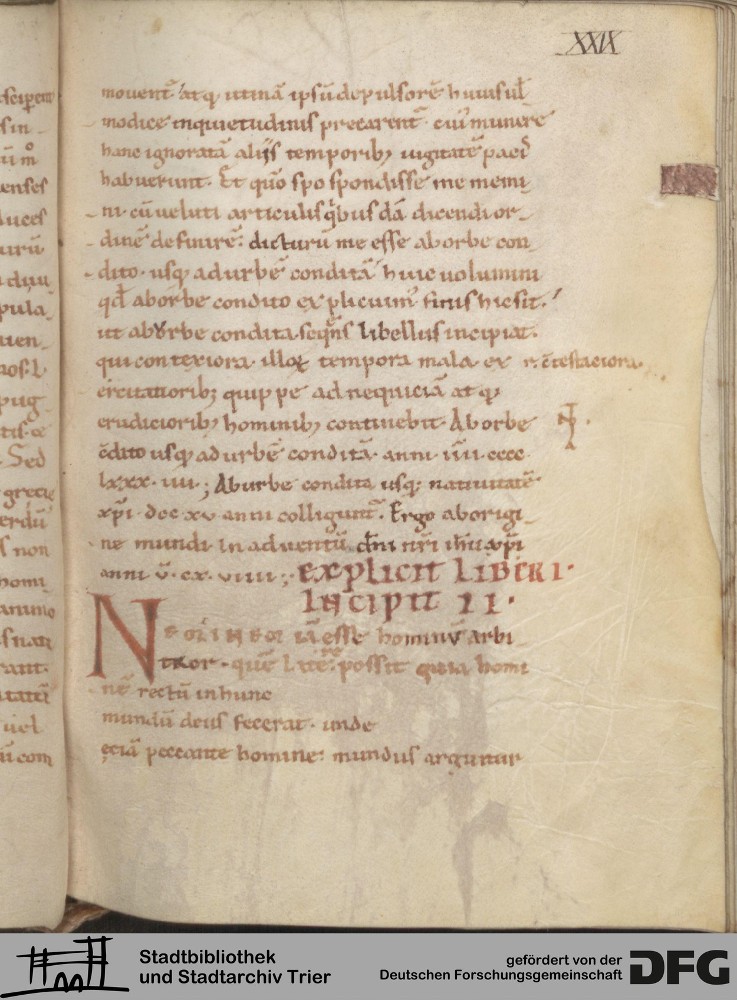 XXIX
movent̃ atq utinã ipsũ depulsorẽ huiusul̃
modice inquietudinis precarent̃ cui' munere
hanc ignoratã alijs temporib; iugitatẽ paci
habuerunt. Et qm̃o spospondisse me memi-
ni cũ veluti articulis qbusdã dicendi or-
dinẽ definirẽ. dicturũ me esse ab orbe con-
dito usq ad urbẽ conditã huic volumini
qd̃ ab orbe condito explicuim' finis hic sit.
ut ab urbe condita seqñs libellus incipiat.
qui contexiora illoꝝ tempora mala ex
r. c̃testaciora
ercitatiorib; quippe ad nequiciã atq
erudiciorib; hominib; continebit. Ab orbe
c̃dito usq ad urbẽ conditã anni iiii cccc
lxxx iiii ; Ab urbe condita usq; nativitatẽ
xp̃i dcc xv anni colligunt̃. Ergo ab origi-
ne mundi in adventũ dñi nr̃i ih̃u xp̃i
anni v̄ cx viiii ;
explicit liber i.
Incipit II.
Neminem iã esse hominum arbi-
tror. quẽ latẽre possit quia homi
nẽ rectũ in hunc
mundũ deus fecerat. unde
ęciã peccante homine. mundus arguitur
Stadtbibliothek
und Stadtarchiv Trier
gefördert von der
Deutschen Forschungsgemeinschaft
DFG